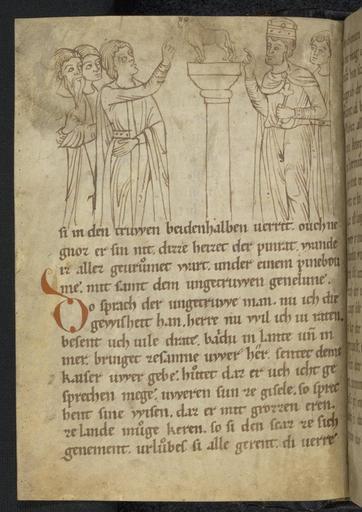 si in den truwen beidenhalben uerrit. ouch ne
gnoz er sin nit. dirre heizet der pinrat. wande
ir aller geurumet wart. under einem pinebou
me. mit samt dem ungetruwen genelune.
So sprach der ungetruwe man. nu ich die
gewisheit han. herre nu wil ich iu raten.
besent uch uile drate. baidu in lante uñ in
mer. bringet zesamne uwer her. sentet deme
kaiser uwer gebe. huotet daz er uch icht ge
sprechen mege. uweren sun ze gisele. so spre
hent sine wisen. daz er mit grozzen eren.
ze lande muge keren. so si den scaz ze sich
genement. urlubes si alle gerent. di uerre